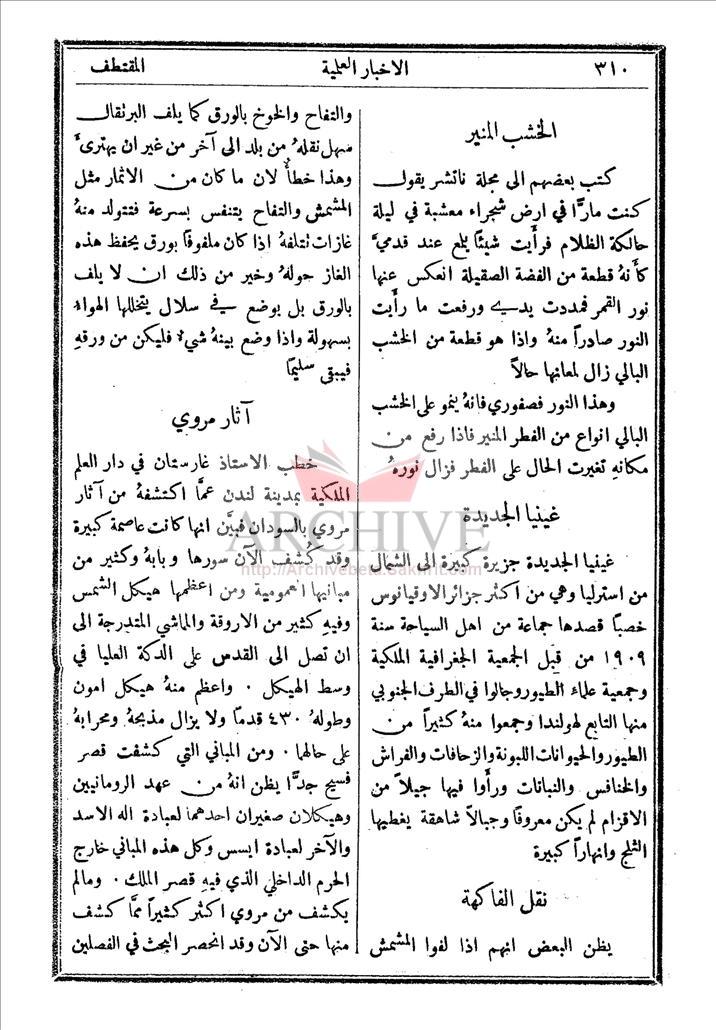 ٣١٠
الاخبار العلمية
المقتطف
الخشب المنير
كتب بعضهم الى مجلة ناتشر يقول
كنت مارًّا في ارض شجراء معشبة في ليلة
حالكة الظلام فرأيت شيئًا يلمع عند قدميَّ
كأنهُ قطعة من الفضة الصقيلة انعكس عنها
نور القمر فمددت يدي ورفعت ما رأيت
النور صادرًا منهُ واذا هو قطعة من الخشب
البالي زال لمعانها حالاً
وهذا النور فصفوري فانهُ ينمو على الخشب
البالي انواع من الفطر المنير فاذا رفع من
مكانهِ تغيرت الحال على الفطر فزال نورهُ
غينيا الجديدة
غينيا الجديدة جزيرة كبيرة الى الشمال
من استرليا وهي من اكثر جزائر الاوقيانوس
خصبًا قصدها جماعة من اهل السياحة سنة
١٩٠٩ من قبل الجمعية الجغرافية الملكية
وجمعية علماء الطيور وجالوا في الطرف الجنوبي
منها التابع لهولندا وجمعوا منهُ كثيرًا من
الطيور والحيوانات اللبونة والزحافات والفراش
والخنافس والنباتات ورأوا فيها جيلاً من
الاقزام لم يكن معروفًا وجبالاً شاهقة يغطيها
الثلج وانهارًا كبيرة
نقل الفاكهة
يظن البعض انهم اذا لفوا المشمش
والتفاح والخوخ بالورق كما يلف البرتقال
سهل نقلهُ من بلد الى آخر من غير ان يهترئَ
وهذا خطأٌ لان ما كان من الاثمار مثل
المشمش والتفاح يتنفس بسرعة فتتولد منهُ
غازات تتلفهُ اذا كان ملفوفًا بورق يحفظ هذه
الغاز حولهُ وخير من ذلك ان لا يلف
بالورق بل يوضع في سلال يتخللها الهواء
بسهولة واذا وضع بينهُ شيء فليكن من ورقهِ
فيبقى سليمًا
آثار مروي
خطب الاستاذ غارستان في دار العلم
الملكية بمدينة لندن عمَّا اكتشفهُ من آثار
مروي بالسودان فبيَّن انها كانت عاصمة كبيرة
وقد كُشف الآن سورها وبابهُ وكثير من
مبانيها العمومية ومن اعظمها هيكل الشمس
وفيهِ كثير من الاروقة والماشي المتدرجة الى
ان تصل الى القدس على الدكة العليا في
وسط الهيكل . واعظم منهُ هيكل امون
وطولهُ ٤٣٠ قدمًا ولا يزال مذبحهُ ومحرابهُ
على حالها . ومن المباني التي كشفت قصر
فسيح جدًّا يظن انهُ من عهد الرومانيين
وهيكلان صغيران احدهما لعبادة اله الاسد
والآخر لعبادة ايسس وكل هذه المباني خارج
الحرم الداخلي الذي فيهِ قصر الملك . ومالم
يكشف من مروي اكثر كثيرًا ممَّا كشف
منها حتى الآن وقد انحصر البحث في الفصلين
ARCHIVE
http://Archivebeta.Sakhrit.com